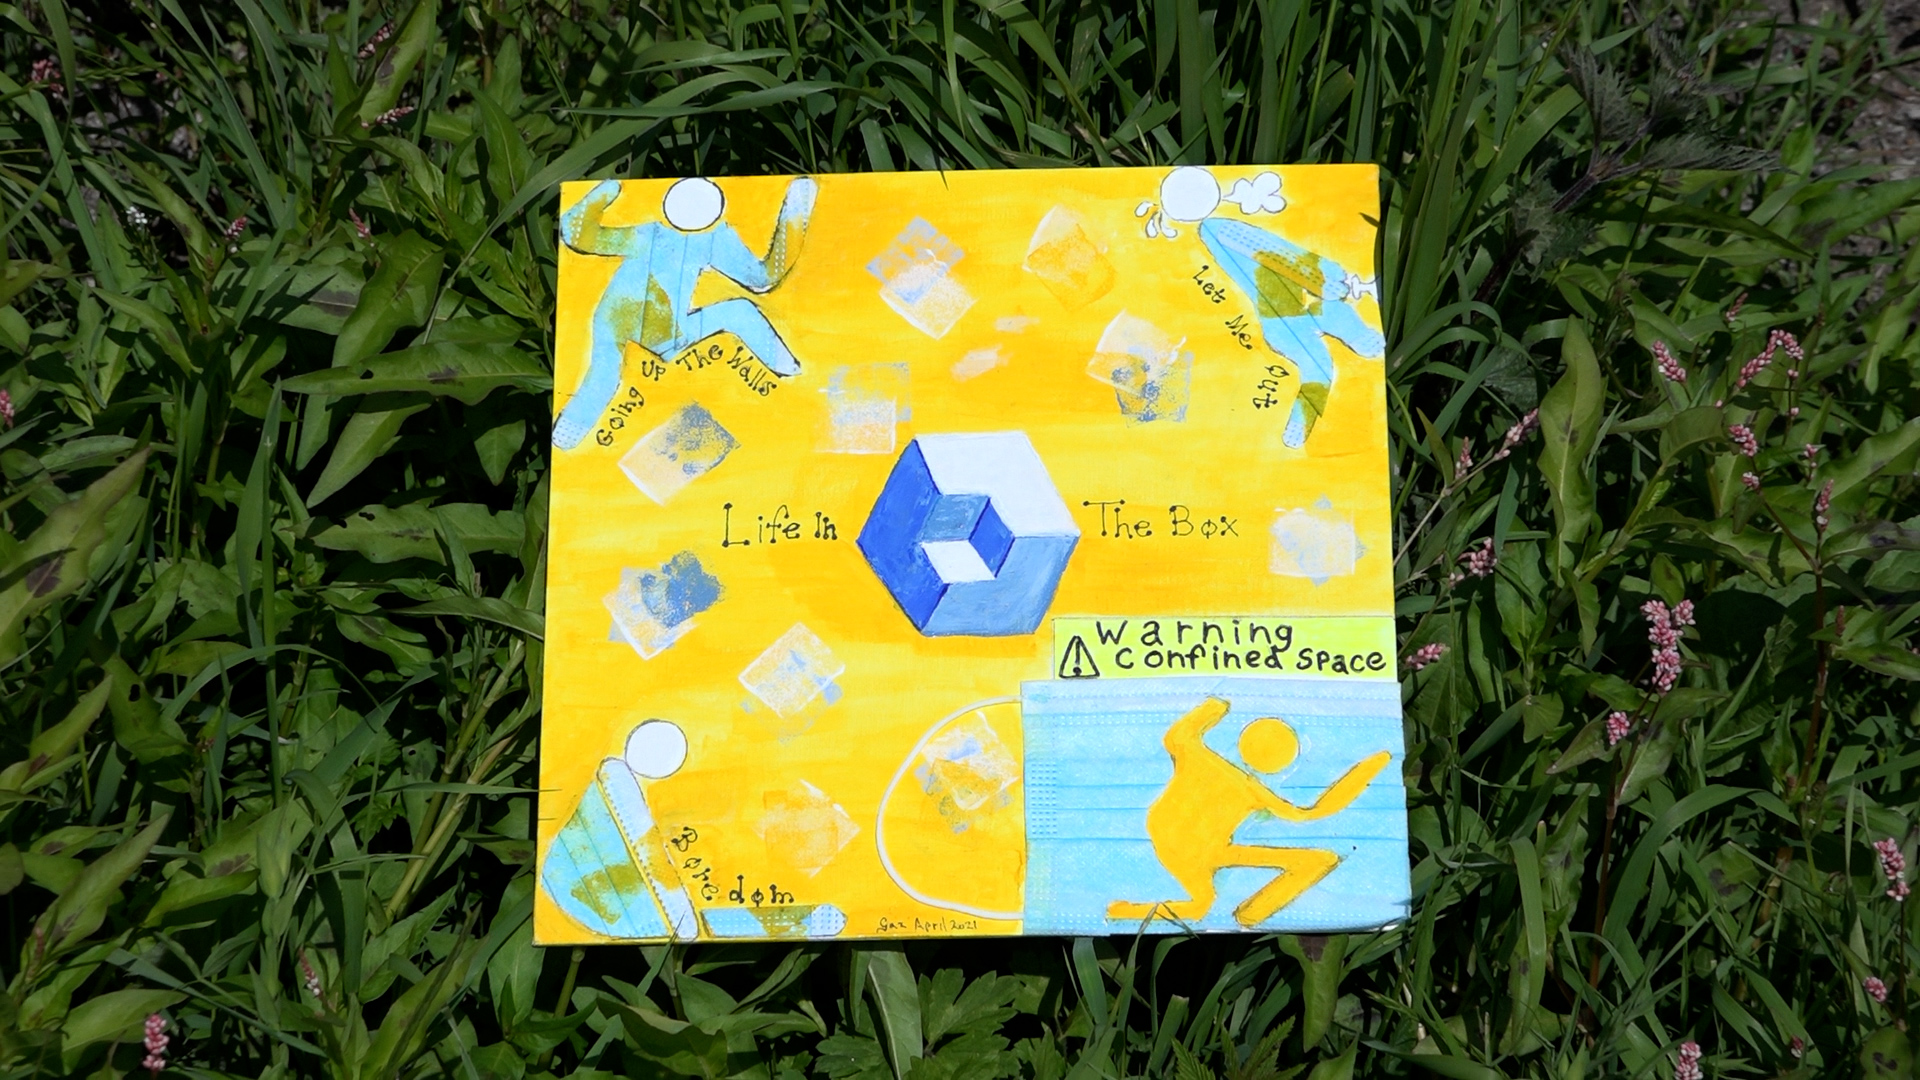 Going Up The Walls
Let Me
Out
Life In The Box
Warning
Confined Space
Boredom
Gaz April 2021